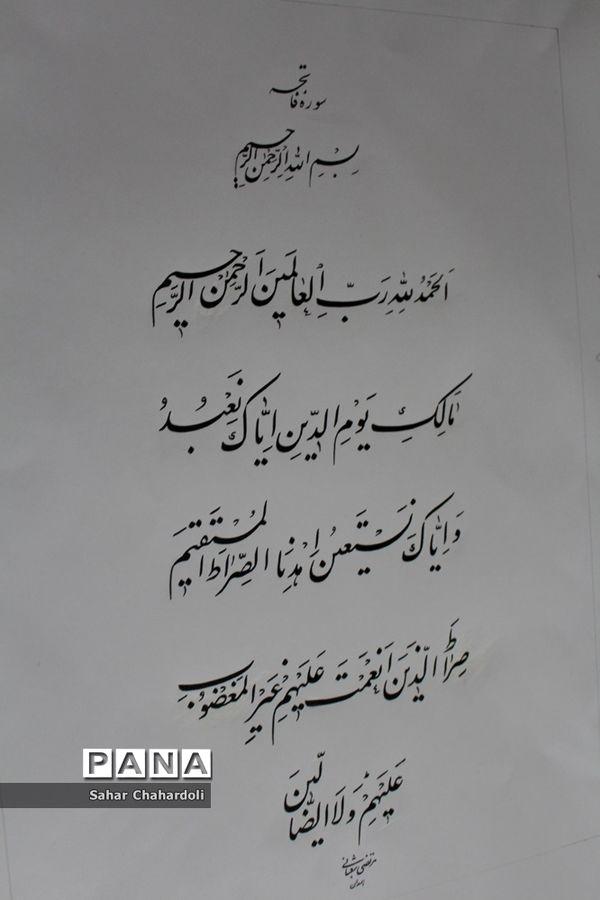 سوره فاتحه
بِسْمِ اللهِ الرَّحْمٰنِ الرَّحیمِ
اَلحَمْدُ لِلّٰهِ رَبِّ الْعٰالَمینَ اَلرَّحْمٰنِ الرَّحیمِ
مٰالِکِ یَوْمِ الدّینِ اِیّٰاکَ نَعْبُدُ
وَ اِیّٰاکَ نَسْتَعینُ اِهْدِنَا الصِّرٰاطَ الْمُسْتَقیمَ
صِرٰاطَ الَّذینَ اَنْعَمْتَ عَلَیْهِمْ غَیْرِ الْمَغْضُوبِ
عَلَیْهِمْ وَلَا الضّٰالّینَ
مرتضی
PANA
Sahar Chahardoli